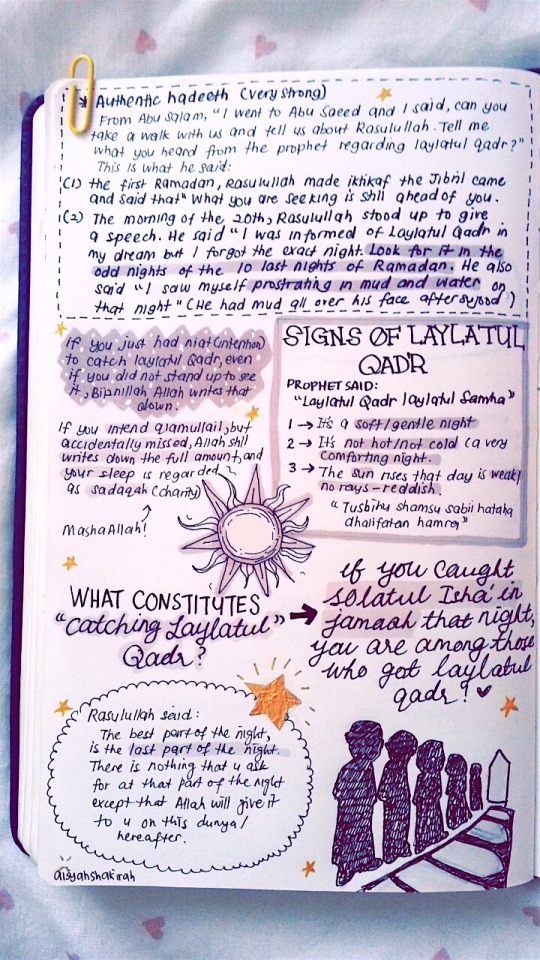 * Authentic hadeeth (very strong)
From Abu Salam, "I went to Abu Saeed and I said, can you
take a walk with us and tell us about Rasulullah. Tell me
what you heard from the prophet regarding laylatul qadr?"
This is what he said:
(1) the first Ramadan, Rasulullah made iktikaf the Jibril came
and said that "what you are seeking is still ahead of you.
(2) The morning of the 20th, Rasulullah stood up to give
a speech. He said "I was informed of Laylatul Qadr in
my dream but I forgot the exact night. Look for it in the
odd nights of the 10 last nights of Ramadan. He also
said "I saw myself prostrating in mud and water on
that night" (He had mud all over his face after sujood)
If you just had niat (intention)
to catch laylatul Qadr, even
if you did not stand up to see
it, Bipnillah Allah writes that
down.
If you intend qiamullail, but
accidentally missed, Allah still
writes down the full amount, and
your sleep is regarded
as sadaqah (charity)
MashaAllah!
SIGNS OF LAYLATUL
QADR
PROPHET SAID:
"Laylatul Qadr laylatul Samha"
1 → It's a soft/gentle night
2 → It's not hot/not cold (a very
comforting night.
3 → The sun rises that day is weak/
no rays - reddish.
"Tusbihu shamsu sabii hataha
dhalifatan hamra"
WHAT CONSTITUTES
"catching Laylatul
Qadr?
→ if you caught
solatul Isha' in
jamaah that night,
you are among those
who got laylatul
qadr! ♥
Rasulullah said:
The best part of the night,
is the last part of the night.
There is nothing that u ask
for at that part of the night
except that Allah will give it
to u on this dunya/
hereafter.
aisyahshakirah